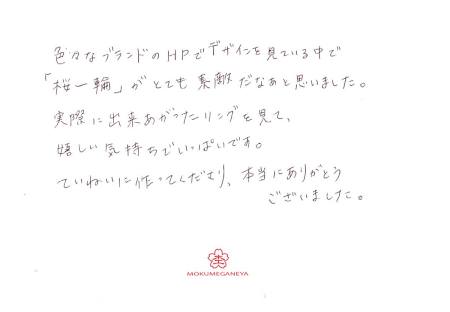 色々なブランドのHPでデザインを見ている中で
「桜一輪」がとても素敵だなぁと思いました。
実際に出来あがったリングを見て、
嬉しい気持ちでいっぱいです。
ていねいに作ってくださり、本当にありがとう
ございました。
MOKUMEGANEYA